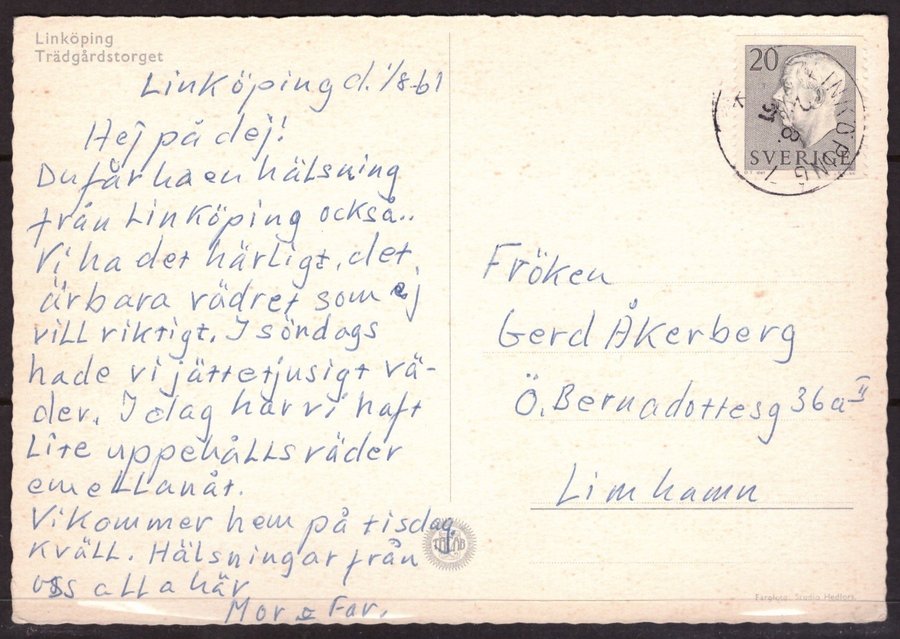 Linköping
Trädgårdstorget
Linköping d. 1/8-61
Hej på dej!
Du får ha en hälsning
från Linköping också..
Vi ha det härligt, det
är bara vädret som ej
vill riktigt. I söndags
hade vi jättetjusigt vä-
der. I dag har vi haft
lite uppehållsväder
emellanåt.
Vi kommer hem på tisdag
kväll. Hälsningar från
oss alla här
Mor & Far.
20
SVERIGE
LINKÖPING
Fröken
Gerd Åkerberg
Ö. Bernadottesg 36a II
Limhamn
Färgfoto: Studio Hedfors.